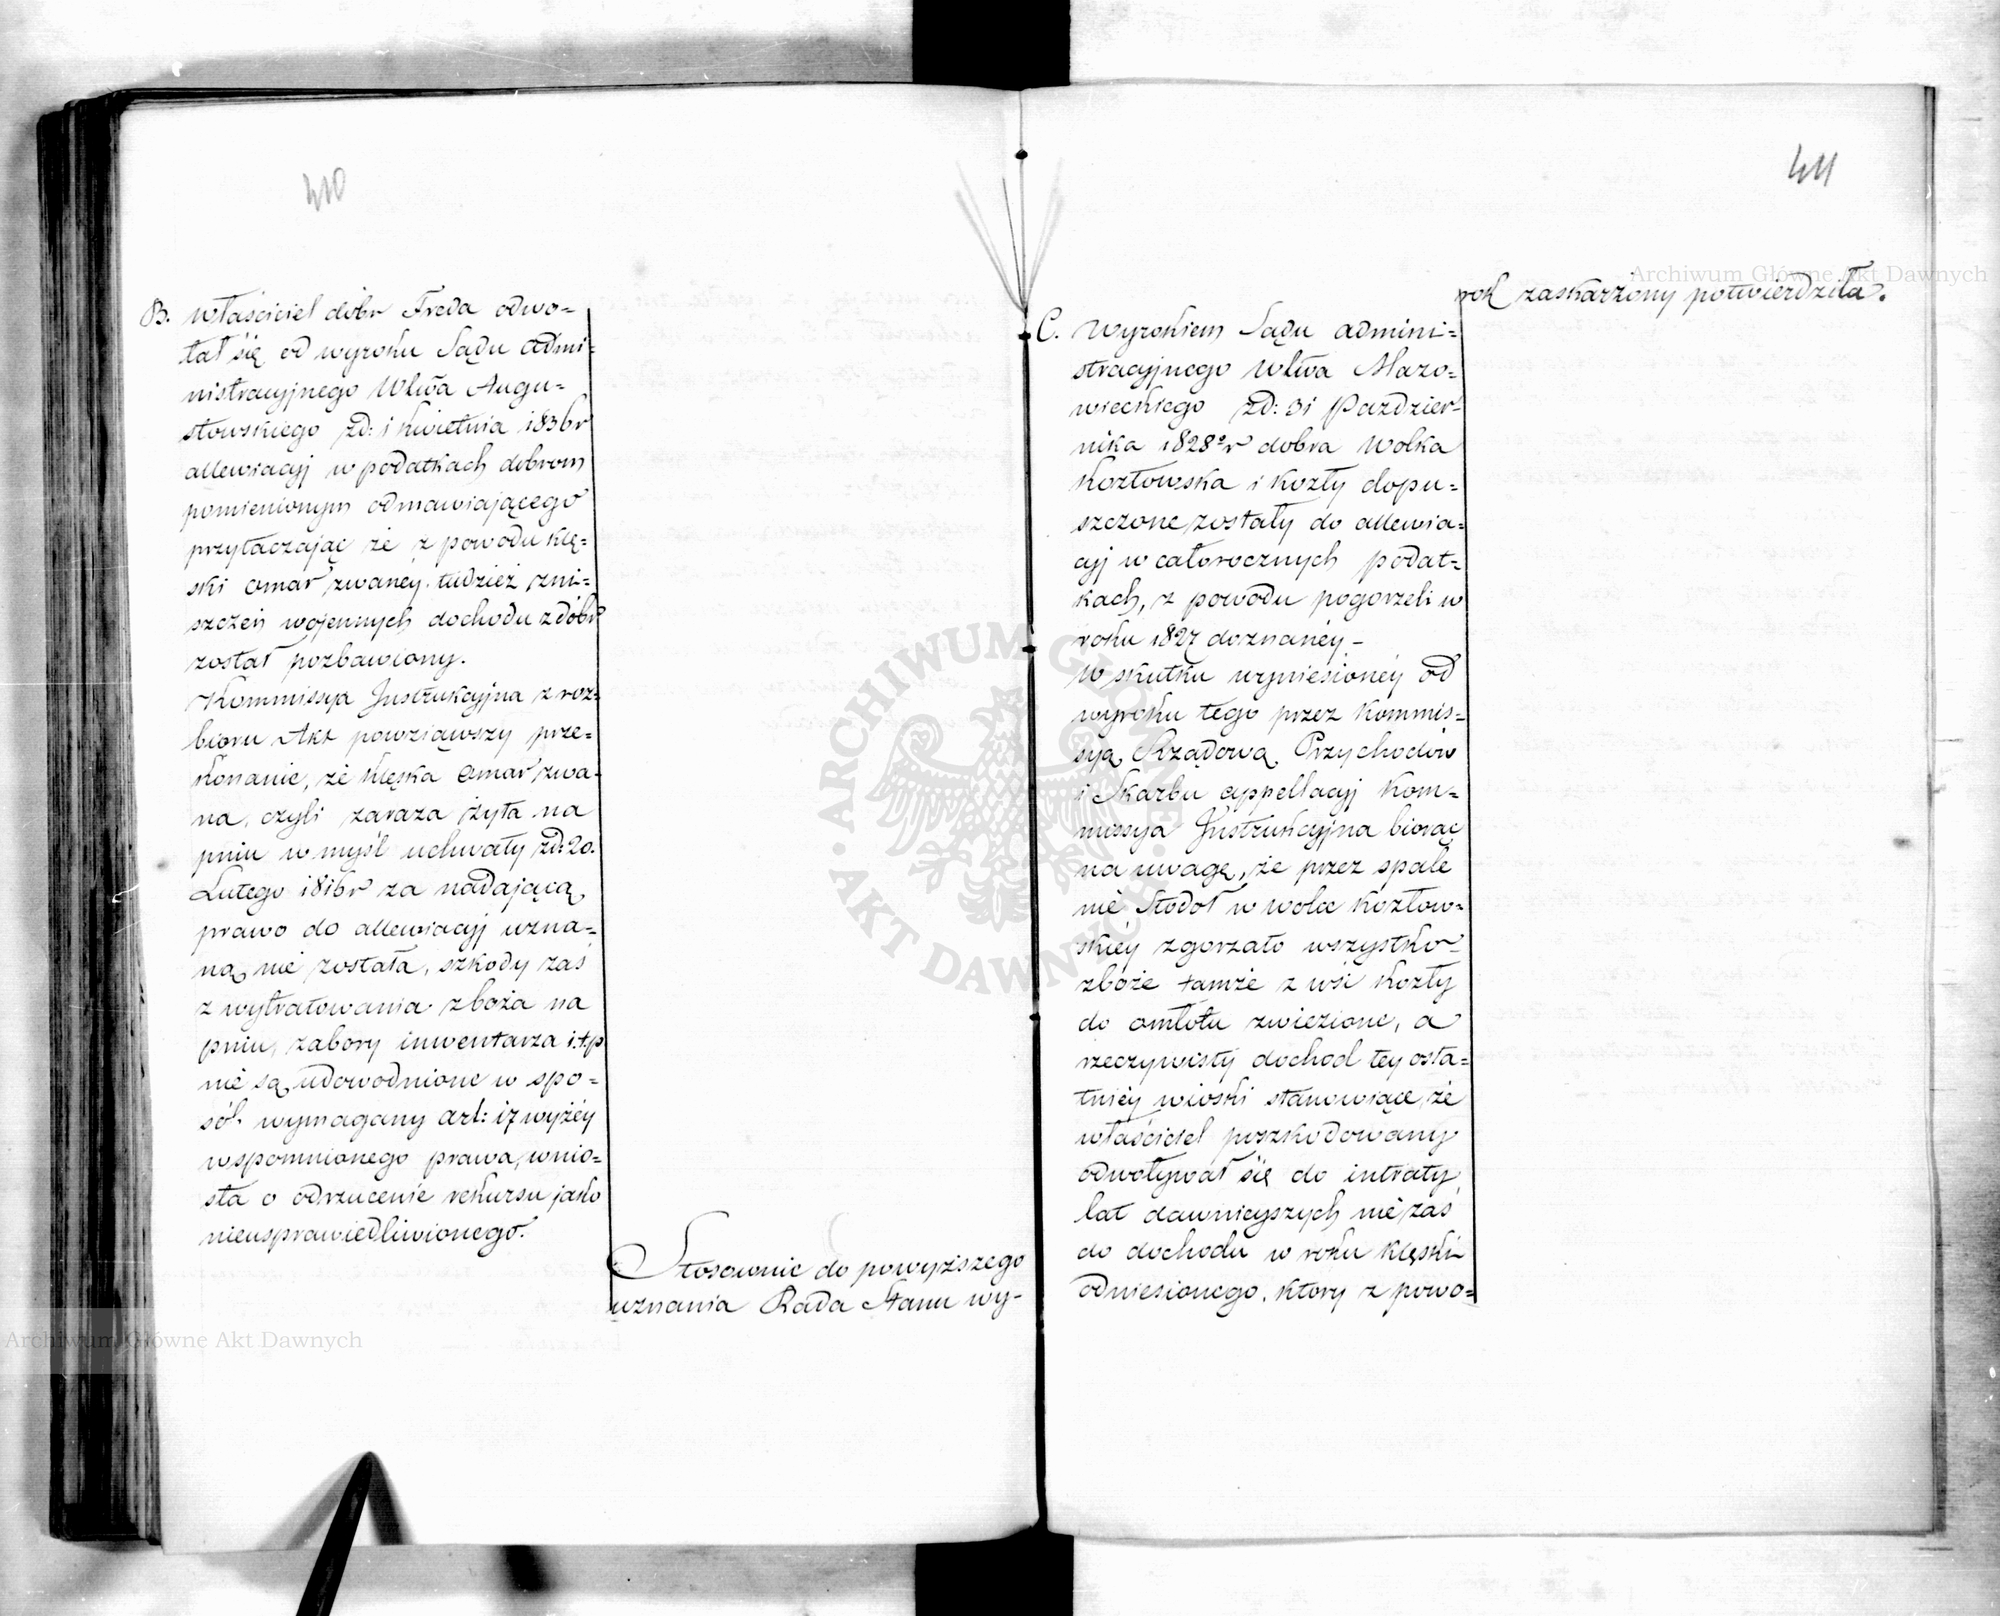 410
B. Właściciel dóbr Freda odwo-
łał się od wyroku Sądu admi-
nistracyjnego Wztwa Augu-
stowskiego zd: 1 Kwietnia 1836 r
allewiacyj w podatkach dobrom
pomienionym odmawiającego
przytaczając że z powodu klę-
ski omar zwanéy tudzież zni-
szczeń wojennych dochodu z dóbr
został pozbawiony.
Kommissya Instrukcyjna z roz-
bioru Akt powziąwszy prze-
konanie, że klęska omar zwa-
na, czyli zaraza żyta na
pniu w myśl uchwały zd: 20.
Lutego 1816 r za nadającą
prawo do allewiacyj uzna-
ną nie została, szkody zaś
z wytratowania zboża na
pniu, zabory inwentarza i t p
nie są udowodnione w spo-
sób wymagany art: 17 wyżéy
wspomnionego prawa, wnio-
sła o odrzucenie rekursu jako
nieusprawiedliwionego.
Stosownie do powyższego
uznania Rada Stanu wy-
411
rok zaskarżony potwierdziła.
C. Wyrokiem Sądu admini-
stracyjnego Wztwa Mazo-
wieckiego zd: 31 Paździer-
nika 1828 r dobra Wolka
Kozłowska i Kozły dopu-
szczone zostały do allewia-
cyj w całorocznych podat-
kach, z powodu pogorzeli w
roku 1827 doznanéy –
W skutku wyniesionéy od
wyroku tego przez Kommis-
syą Rządową Przychodów
i Skarbu appellacyj Kom-
missya Instrukcyjna biorąc
na uwagę, że przez spale
nie stodoł w wolce Kozłow-
skiéy zgorzało wszystko
zboże tamże z wsi Kozły
do omłotu zwiezione, a
rzeczywisty dochod tey osta-
tniéy wioski stanowiące, że
właściciel poszkodowany
odwoływał się do intraty
lat dawnieyszych nie zaś
do dochodu w roku klęski
odniesionego, który z powo-
Archiwum Główne Akt Dawnych
Archiwum Główne Akt Dawnych
ARCHIWUM GŁÓWNE AKT DAWNYCH